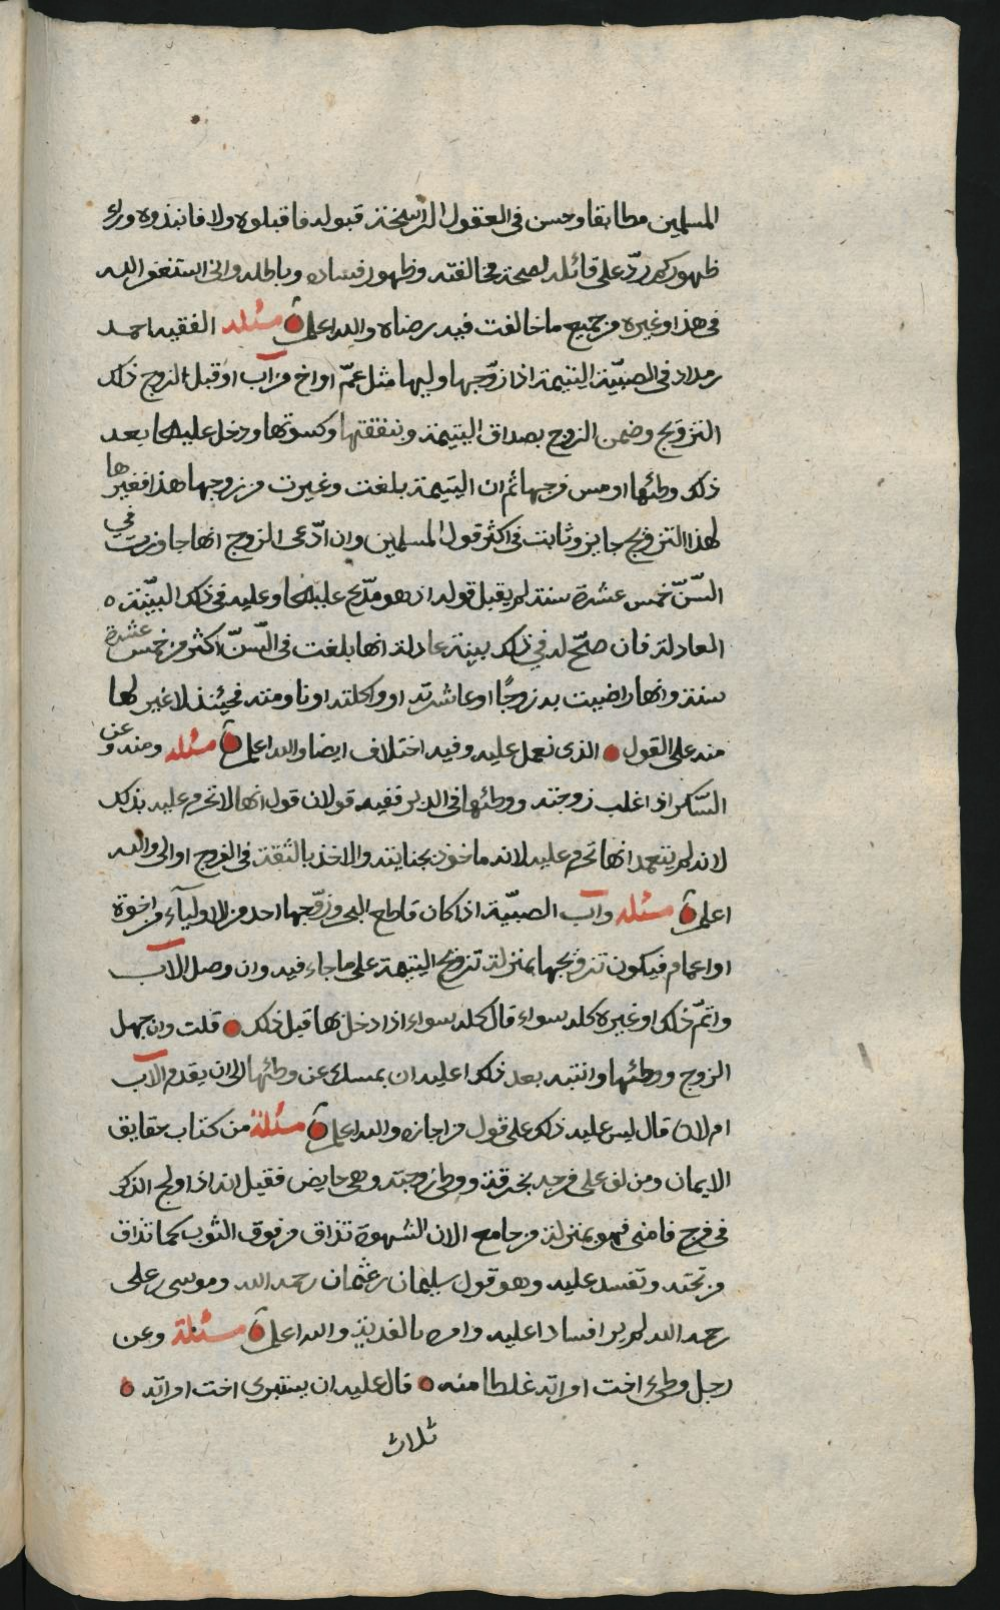 المسلمين مطابقا وحسن في العقول الراسخة قبوله فاقبلوه ولا فانبذوه وراء
ظهوركم ردّ على قائله لصحة مخالفته وظهور فساده وباطله وانى استغفر الله
فى هذا وغيره من جميع ما خالفت فيه رضاه والله اعلم مسئله الفقيه احمد
بن مداد فى الصبيّة اليتيمة اذا زوّجها وليها مثل عمّ او اخ من آب او قبل الزوج ذلك
التزويج وضمن الزوج بصداق اليتيمة وبنفقتها وكسوتها ودخل عليها بعد
ذلك وطئها او مس فرجها ثم ان اليتيمة بلغت وغيرت من زوجها هذا فغيرها
لهذا التزويج جايز وثابت فى اكثر قول المسلمين وان ادّعى الزوج انها جاوزت في
السّنّ خمس عشرة سنة لم يقبل قوله اذ هو مدّع عليها وعليه فى ذلك البيّنة ه
العادلة فان صحّ له في ذلك بينة عادلة انها بلغت فى السّنّ اكثر من خمس عشرة
سنة وانها راضيت به زوجًا او عاشرته او واكلته او ناومته فحينئذ لا غير لها
منه على القول الذى نعمل عليه وفيه اختلاف ايضا والله اعلم مسئله ومنه وعن
السّكر اذا غلب زوجته ووطئها فى الدبر ففيه قولان قول انها لا تحرم عليه بذلك
لانه لم يتعمد انها تحرم عليه لانه ماخوذ بجنايته والاخذ بالثقة فى الفرج اولى والله
اعلم مسئله وآب الصبيّة اذا كان قاطع البحر وزوّجها احد من الاوليآء من اخوة
او اعمام فيكون تزويجها بمنزلة تزويج اليتيمة على ما جاء فيه وان وصل الآب
واتمّ ذلك او غيره كله سواء قال كله سواء اذا دخل بها قبل ذلك قلت وان جهل
الزوج ووطئها وانتبه بعد ذلك اعليه ان يمسك عن وطئها الى ان يقدم الآب
ام لا قال ليس عليه ذلك على قول من اجازه والله اعلم مسئلة من كتاب حقايق
الايمان ومن لف على فرجه بخرقة ووطئ زوجته وهى حايض فقيل انه اذا اولج الذكر
فى فرج فامنى فهو بمنزلة من جامع الان الشهوة تذاق من فوق الثوب كما تذاق
من تحته وتفسد عليه وهو قول سليمان بن عثمان رحمه الله وموسى بن على
رحمه الله لم ير افسادا عليه وامره بالفدية والله اعلم مسئلة وعن
رجل وطىء اخت امراته غلطا منه قال عليه ان يستبرى اخت امراته
ثلاث